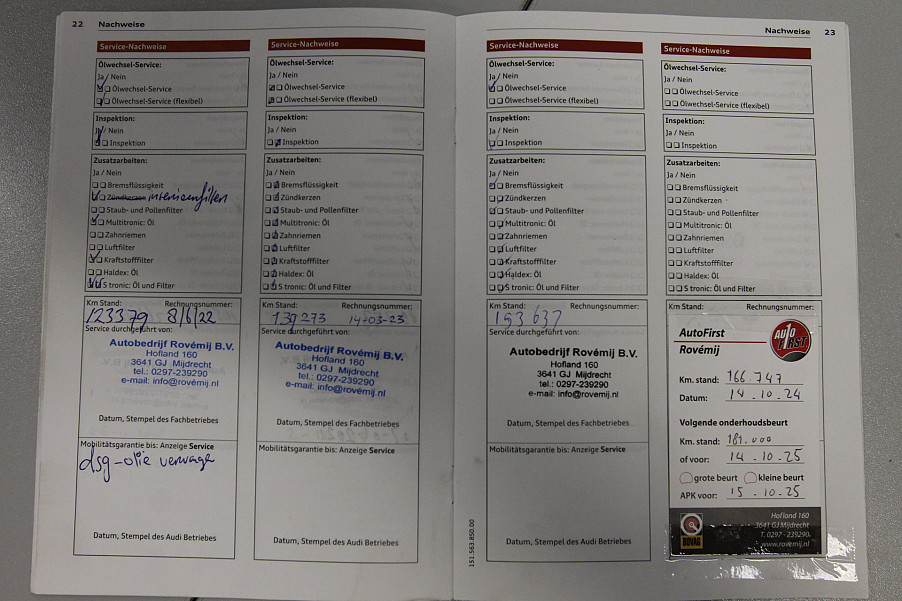 22 Nachweise
Service-Nachweise
Ölwechsel-Service:
Ja / Nein
Ölwechsel-Service
Ölwechsel-Service (flexibel)
Inspektion:
Ja / Nein
Inspektion
Zusatzarbeiten:
Ja / Nein
Bremsflüssigkeit
Zündkerzen
Staub- und Pollenfilter
Multitronic: Öl
Zahnriemen
Luftfilter
Kraftstofffilter
Haldex: Öl
S tronic: Öl und Filter
Km Stand: Rechnungsnummer:
123379 8/6/22
Service durchgeführt von:
Autobedrijf Rovémij B.V.
Hofland 160
3641 GJ Mijdrecht
tel.: 0297-239290
e-mail: info@rovémij.nl
Datum, Stempel des Fachbetriebes
Mobilitätsgarantie bis: Anzeige Service
dsg-olie vervange
Datum, Stempel des Audi Betriebes
Service-Nachweise
Ölwechsel-Service:
Ja / Nein
Ölwechsel-Service
Ölwechsel-Service (flexibel)
Inspektion:
Ja / Nein
Inspektion
Zusatzarbeiten:
Ja / Nein
Bremsflüssigkeit
Zündkerzen
Staub- und Pollenfilter
Multitronic: Öl
Zahnriemen
Luftfilter
Kraftstofffilter
Haldex: Öl
S tronic: Öl und Filter
Km Stand: Rechnungsnummer:
139273 14-03-23
Service durchgeführt von:
Autobedrijf Rovémij B.V.
Hofland 160
3641 GJ Mijdrecht
tel.: 0297-239290
e-mail: info@rovémij.nl
Datum, Stempel des Fachbetriebes
Mobilitätsgarantie bis: Anzeige Service
Datum, Stempel des Audi Betriebes
Nachweise 23
Service-Nachweise
Ölwechsel-Service:
Ja / Nein
Ölwechsel-Service
Ölwechsel-Service (flexibel)
Inspektion:
Ja / Nein
Inspektion
Zusatzarbeiten:
Ja / Nein
Bremsflüssigkeit
Zündkerzen
Staub- und Pollenfilter
Multitronic: Öl
Zahnriemen
Luftfilter
Kraftstofffilter
Haldex: Öl
S tronic: Öl und Filter
Km Stand: Rechnungsnummer:
153637
Service durchgeführt von:
Autobedrijf Rovémij B.V.
Hofland 160
3641 GJ Mijdrecht
tel.: 0297-239290
e-mail: info@rovemij.nl
Datum, Stempel des Fachbetriebes
Mobilitätsgarantie bis: Anzeige Service
Datum, Stempel des Audi Betriebes
151.563.850.00
Service-Nachweise
Ölwechsel-Service:
Ja / Nein
Ölwechsel-Service
Ölwechsel-Service (flexibel)
Inspektion:
Ja / Nein
Inspektion
Zusatzarbeiten:
Ja / Nein
Bremsflüssigkeit
Zündkerzen
Staub- und Pollenfilter
Multitronic: Öl
Zahnriemen
Luftfilter
Kraftstofffilter
Haldex: Öl
S tronic: Öl und Filter
Km Stand: Rechnungsnummer:
AutoFirst
Rovémij
AUTO FIRST
Km. stand: 166.747
Datum: 14.10.24
Volgende onderhoudsbeurt
Km. stand: 181.000
of voor: 14.10.25
grote beurt kleine beurt
APK voor: 15.10.25
BOVAG
Hofland 160
3641 GJ Mijdrecht
T. 0297 - 239290
www.rovémij.nl